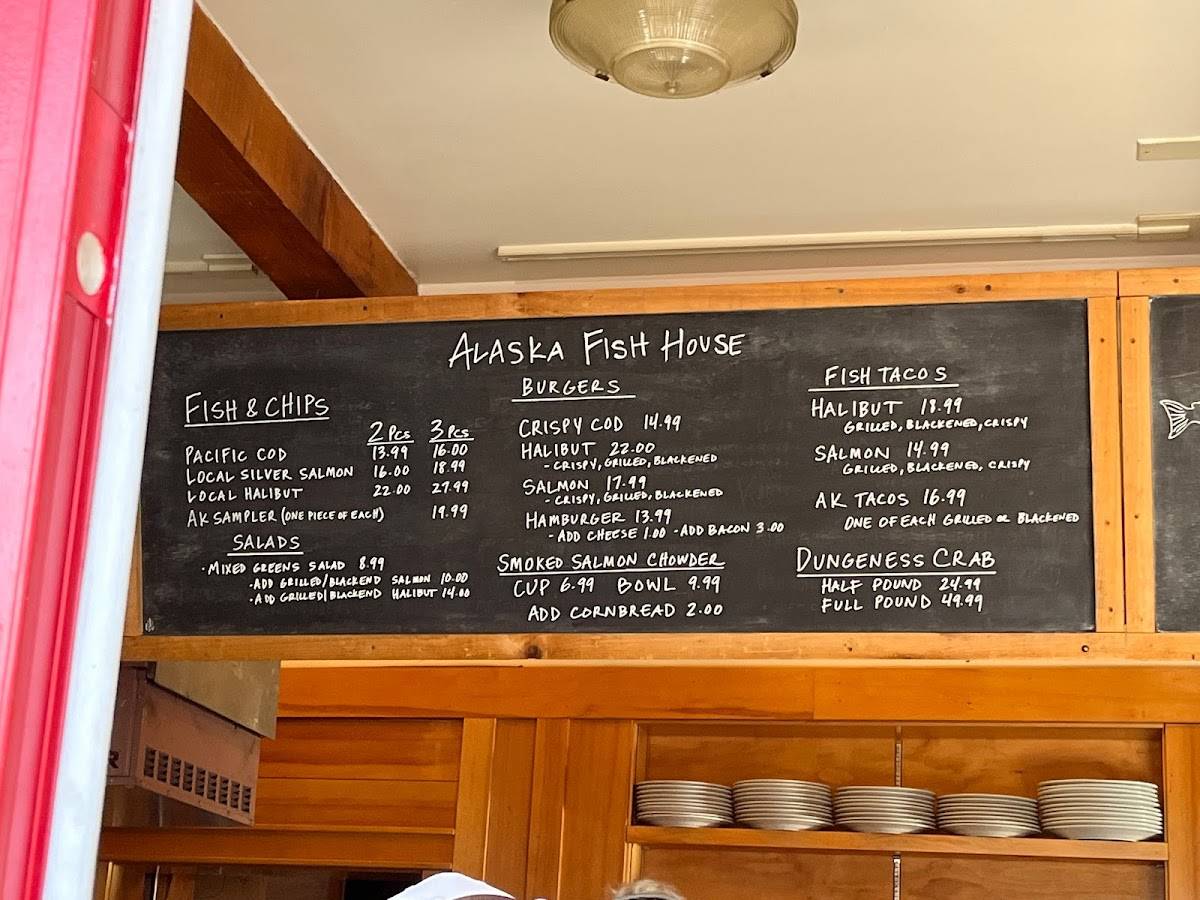 ALASKA FISH HOUSE
FISH & CHIPS
2 PCS 3 PCS
PACIFIC COD 13.99 16.00
LOCAL SILVER SALMON 16.00 18.99
LOCAL HALIBUT 22.00 27.99
AK SAMPLER (ONE PIECE OF EACH) 19.99
SALADS
· MIXED GREENS SALAD 8.99
· ADD GRILLED/BLACKEND SALMON 10.00
· ADD GRILLED/BLACKEND HALIBUT 14.00
BURGERS
CRISPY COD 14.99
HALIBUT 22.00
- CRISPY, GRILLED, BLACKENED
SALMON 17.99
- CRISPY, GRILLED, BLACKENED
HAMBURGER 13.99
- ADD CHEESE 1.00 - ADD BACON 3.00
SMOKED SALMON CHOWDER
CUP 6.99 BOWL 9.99
ADD CORNBREAD 2.00
FISH TACOS
HALIBUT 18.99
GRILLED, BLACKENED, CRISPY
SALMON 14.99
GRILLED, BLACKENED, CRISPY
AK TACOS 16.99
ONE OF EACH GRILLED OR BLACKENED
DUNGENESS CRAB
HALF POUND 24.99
FULL POUND 49.99